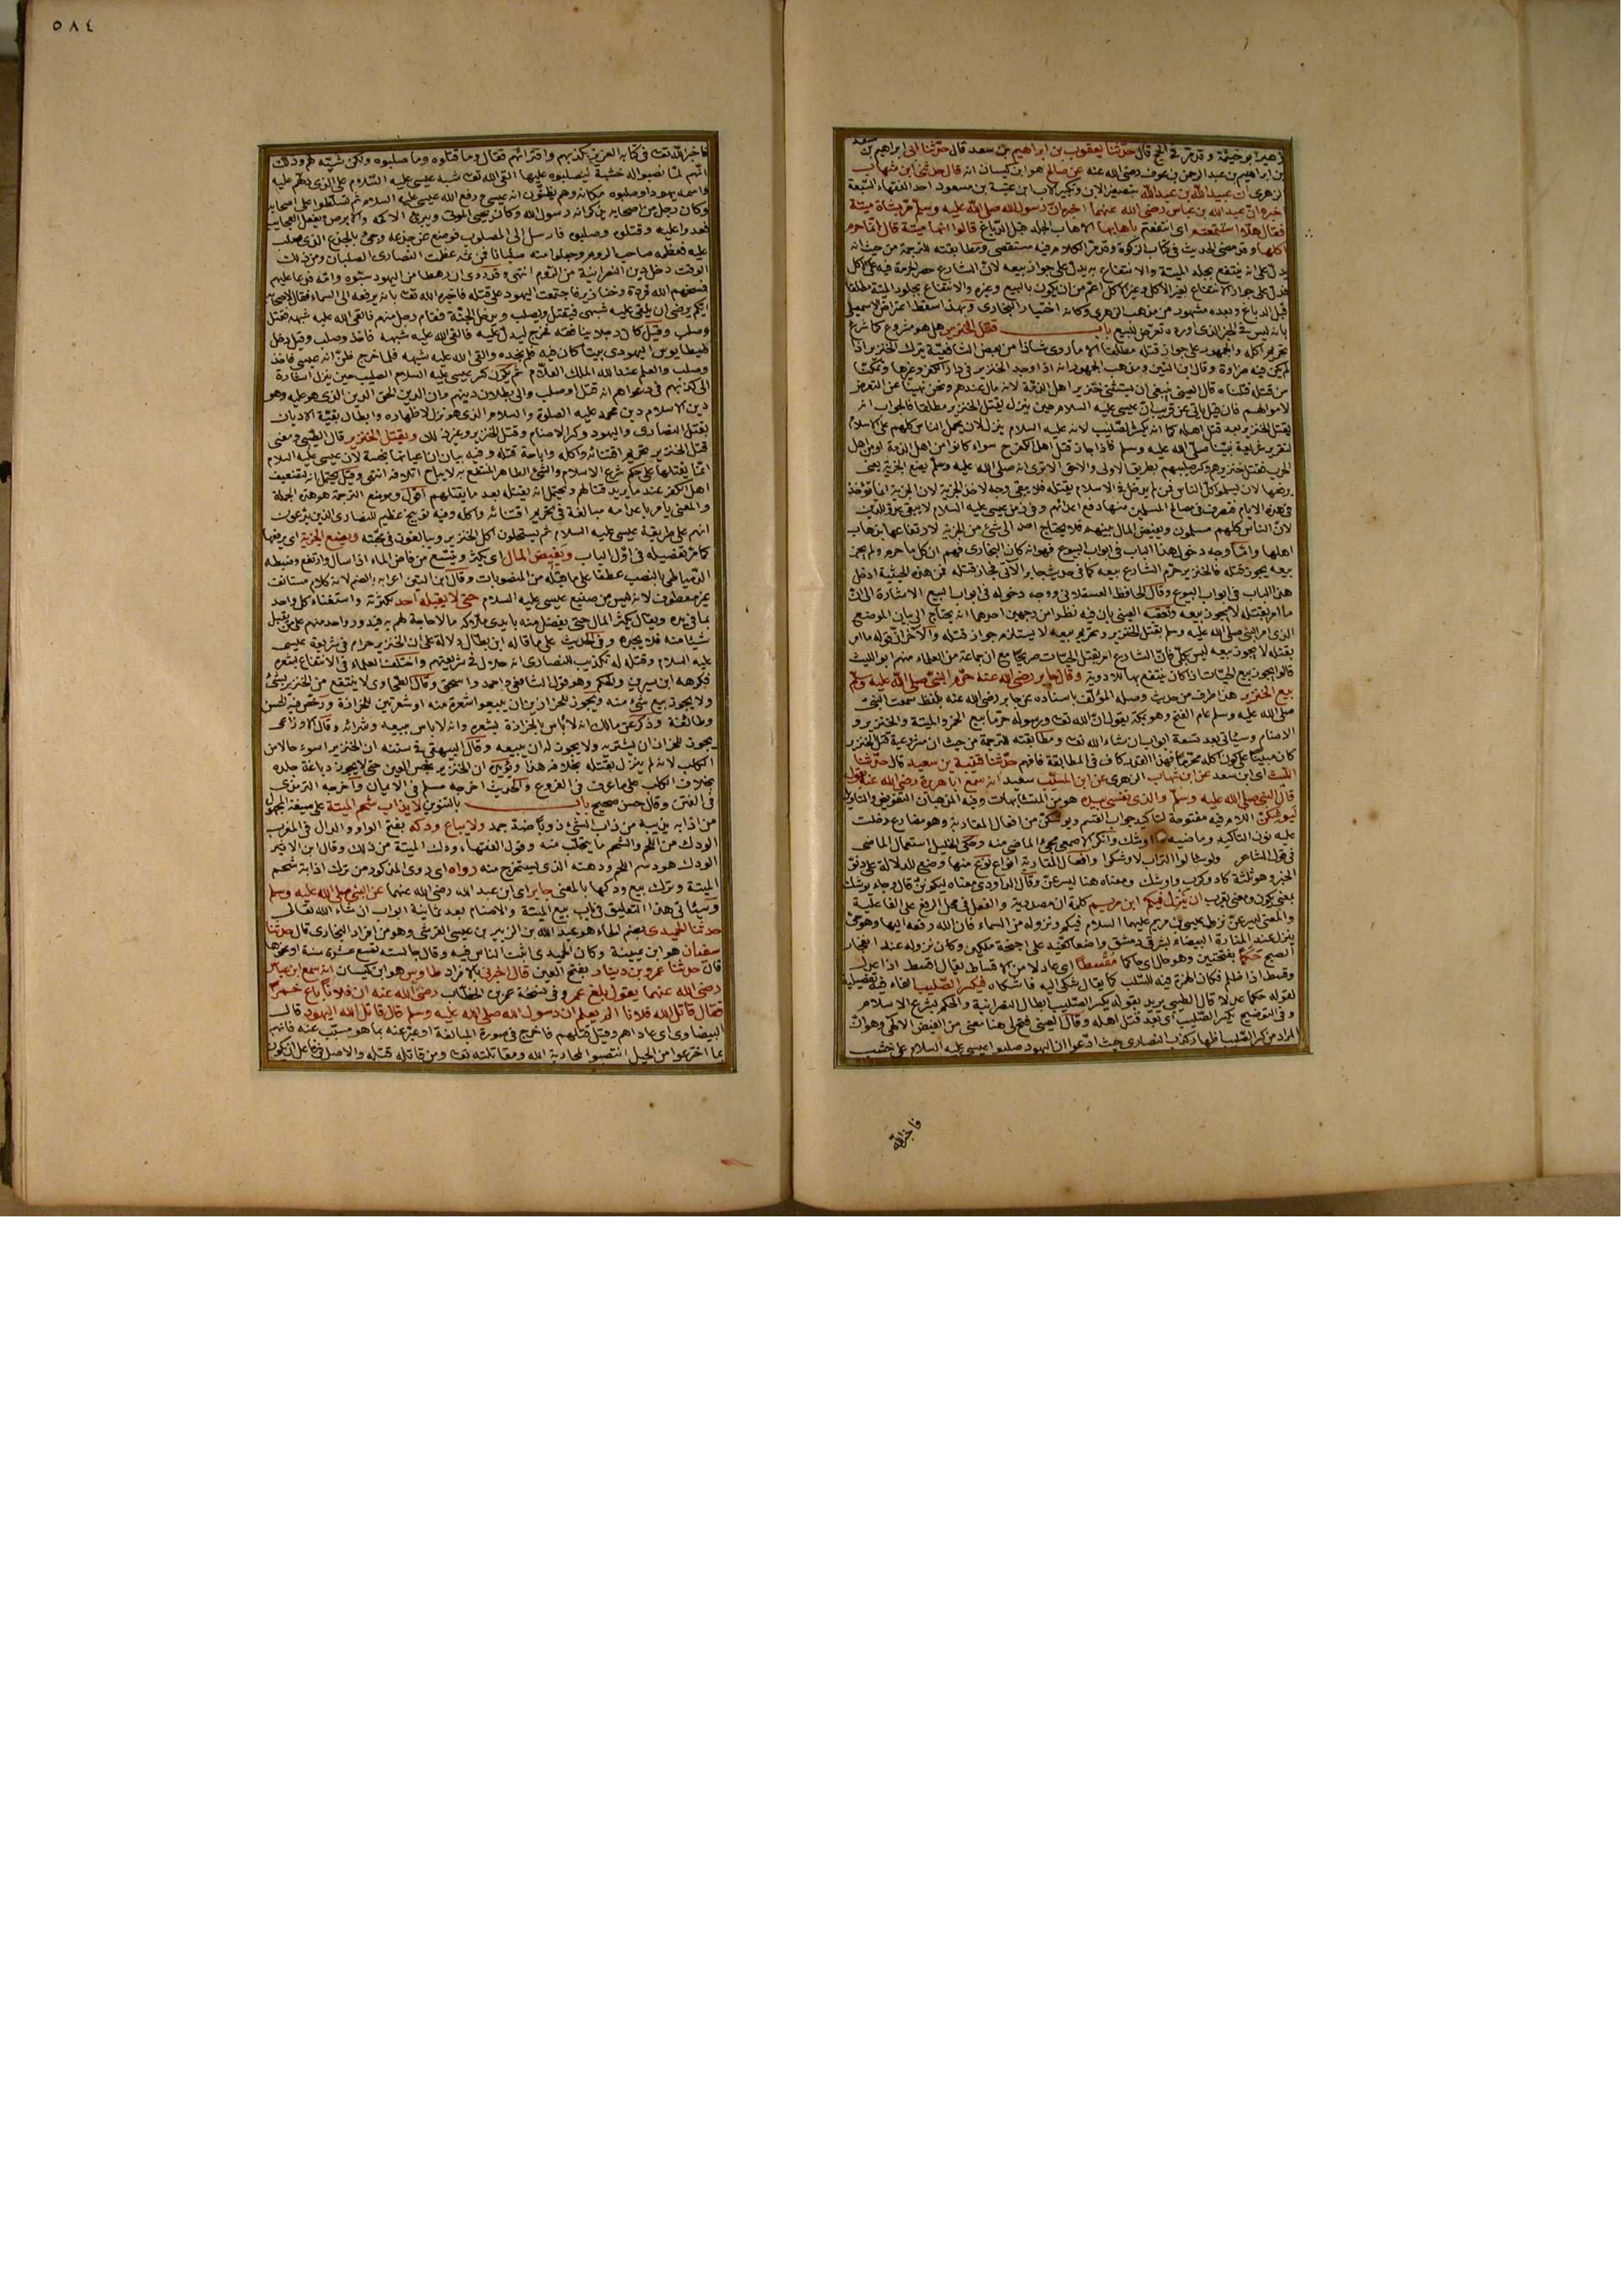 زهير ابو خيثمة وقد مر في الحج قال حدثنا يعقوب بن ابراهيم بن سعد قال حدثنا ابى ابراهيم بن سعد
بن ابراهيم بن عبد الرحمن بن عوف رضى الله عنه عن صالح هو ابن كيسان انه قال حدثنى ابن شهاب
الزهرى ان عبيد الله بن عبد الله بتصغير الابن وتكبير الاب ابن عتبة بن مسعود احد الفقهاء السبعة
اخبره ان عبد الله بن عباس رضى الله عنهما اخبره ان رسول الله صلى الله عليه وسلم مر بشاة ميتة
فقال هلا استمتعتم اى انتفعتم باهابها الاهاب الجلد قبل الدباغ قالوا انها ميتة قال انما حرم
اكلها وقد مضى الحديث فى كتاب الزكوة وقد مر الكلام فيه مستقصى ومطابقته للترجمة من حيث انه
يدل على انه ينتفع بجلد الميتة والانتفاع به يدل على جواز بيعه لان الشارع حصر الحرمة فيه على الاكل
فدل على جواز الانتفاع بغير الاكل وغير الاكل اعم من ان يكون بالبيع وغيره والانتفاع بجلود الميتة مطلقا
قبل الدباغ وبعده مشهور من مذهب الزهرى وكانه اختيار البخارى وبهذا سقط اعتراض الاسمعيلى
بانه ليس فى الخبر الذى اورده تعرض للبيع باب قتل الخنزير هل هو مشروع كما شرع
تحريم اكله والجمهور على جواز قتله مطلقا الا ما روى شاذا من بعض الشافعية بترك الخنزير اذا
لم يكن فيه ضراوة وقال ابن التين ومذهب الجمهور انه اذا وجد الخنزير فى دار الكفر وغيرها وتمكنا
من قتله قتلناه قال العينى ينبغى ان يستثنى خنزير اهل الذمة لانه مال عندهم ونحن نهينا عن التعرض
لاموالهم فان قيل يأتى عن قريب ان عيسى عليه السلام حين ينزل يقتل الخنزير مطلقا فالجواب انه
يقتل الخنزير بعد قتل اهله كما انه يكسر الصليب لانه عليه السلام ينزل لان يحمل الناس كلهم على الاسلام
لتقرير شريعة نبينا صلى الله عليه وسلم فاذا جاز قتل اهل الكفر سواء كانوا من اهل الذمة او من اهل
الحرب فقتل خنزيرهم وكسر صليبهم بطريق الاولى والاحق الا ترى انه صلى الله عليه وسلم يضع الجزية يعنى
يرفعها لان يسلم كل الناس فمن لم يدخل فى الاسلام يقتله فلا يبقى وجه لاخذ الجزية لان الجزية انما تؤخذ
فى هذه الايام لتصرف فى مصالح المسلمين منها دفع اعدائهم وفى زمن عيسى عليه السلام لا يبقى عدو للدين
لان الناس كلهم مسلمون ويفيض المال بينهم فلا يحتاج احد الى شىء من الجزية لارتفاعها بذهاب
اهلها واما وجه دخول هذا الباب فى ابواب البيوع فهو انه كان البخارى فهم ان كل ما حرم ولم يجز
بيعه يجوز قتله فالخنزير حرم الشارع بيعه كما فى حديث جابر الآتى فجاز قتله فمن هذه الحيثية ادخل
هذا الباب فى ابواب البيوع وقال الحافظ العسقلانى ووجه دخوله فى ابواب البيع الاشارة الى ان
ما امر بقتله لا يجوز بيعه وتعقبه العينى بان فيه نظرا من وجهين احدهما انه يحتاج الى بيان الموضع
الذى امر النبى صلى الله عليه وسلم بقتل الخنزير وتحريم بيعه لا يستلزم جواز قتله والآخر ان قوله ما امر
بقتله لا يجوز بيعه ليس بكلى فان الشارع امر بقتل الحيات صريحا مع ان جماعة من العلماء منهم ابو الليث
قالوا يجوز بيع الحيات اذا كان ينتفع بها للادوية وقال جابر رضى الله عنه حرم النبى صلى الله عليه وسلم
بيع الخنزير هذا طرف من حديث وصله المؤلف باسناده عن جابر رضى الله عنه بلفظ سمعت النبى
صلى الله عليه وسلم عام الفتح وهو بمكة يقول ان الله تعالى ورسوله حرما بيع الخمر والميتة والخنزير و
الاصنام وسيأتى بعد تسعة ابواب ان شاء الله تعالى ومطابقته للترجمة من حيث ان مشروعية قتل الخنزير
كان مبنيا على كون اكله محرما فهذا القدر كاف فى المطابقة فافهم حدثنا قتيبة بن سعيد قال حدثنا
الليث اى ابن سعد عن ابن شهاب الزهرى عن ابن المسيب سعيد انه سمع ابا هريرة رضى الله عنه يقول
قال النبى صلى الله عليه وسلم والذى نفسى بيده هو من المتشابهات وفيه المذهبان التفويض والتاويل
ليوشكن اللام فيه مفتوحة لتاكيد جواب القسم ويوشكن من افعال المقاربة وهو مضارع دخلت
عليه نون التاكيد وماضيه اوشك وانكر الاصمعى مجىء الماضى منه وحكى الخليل استعمال الماضى
فى قول الشاعر ولو سئلوا التراب لاوشكوا وافعال المقاربة انواع نوع منها وضع للدلالة على دنو
الخبر وهو ثلثة كاد وكرب واوشك ومعناه هنا ليسرعن وقال الداودى معناه ليكونن قال وجاء يوشك
بمعنى يكون وبمعنى يقرب ان ينزل فيكم ابن مريم كلمة ان مصدرية والفعل فى محل الرفع على الفاعلية
والمعنى ليسرعن نزول عيسى بن مريم عليهما السلام فيكم ونزوله من السماء فان الله رفعه اليها وهو حى
ينزل عند المنارة البيضاء بشرقى دمشق واضعا كفيه على اجنحة ملكين وكان نزوله عند انفجار
الصبح حكما بفتحتين وهو حال اى حاكما مقسطا اى عادلا من الاقساط يقال اقسط اذا عدل
وقسط اذا ظلم فكان الهمزة فيه للسلب كما يقال شكى اليه فاشكاه فيكسر الصليب الفاء فيه تفصيلية
لقوله حكما عدلا قال الطيبى يريد بقوله يكسر الصليب ابطال النصرانية والحكم بشرع الاسلام
وفى التوضيح يكسر الصليب اى بعد قتل اهله وقال العينى فتح لى هنا معنى من الفيض الالهى وهو ان
المراد من كسر الصليب اظهار كذب النصارى حيث ادعوا ان اليهود صلبوا عيسى عليه السلام على خشب
فاخبر الله
٥٨٤
فاخبر الله تعالى فى كتابه العزيز بكذبهم وافترائهم فقال وما قتلوه وما صلبوه ولكن شبه لهم وذلك
انهم لما نصبوا له خشبة ليصلبوه عليها القى الله تعالى شبه عيسى عليه السلام على الذى دلهم عليه
واسمه يهودا وصلبوه مكانه وهم يظنون انه عيسى ورفع الله عيسى عليه السلام ثم تسلطوا على اصحابه
وكان رجل من اصحابه يذكر انه رسول الله وكان يحيى الموتى ويبرئ الاكمه والابرص ويفعل العجائب
فعدوا عليه وقتلوه وصلبوه فارسل الى المصلوب فوضع عن جذعه وجىء بالجذع الذى صلب
عليه فعظمه صاحب الروم وجعلوا منه صلبانا فمن ثمه عظمت النصارى الصلبان ومن ذلك
الوقت دخل دين النصرانية من الروم انتهى وقد روى ان رهطا من اليهود سبوه وامه فدعا عليهم
فمسخهم الله قردة وخنازير فاجتمعت اليهود على قتله فاخبره الله تعالى بانه يرفعه الى السماء فقال لاصحابه
ايكم يرضى ان يلقى عليه شبهى فيقتل ويصلب ويدخل الجنة فقام رجل منهم فالقى الله عليه شبهه فقتل
وصلب وقيل كان رجلا ينافقه فخرج ليدل عليه فالقى الله عليه شبهه فاخذ وصلب وقيل دخل
طيطايوس اليهودى بيتا كان فيه فلم يجده والقى الله عليه شبهه فلما خرج ظن انه عيسى فاخذ
وصلب والعلم عند الله الملك العلام ثم يكون كسر عيسى عليه السلام الصليب حين ينزل اشارة
الى كذبهم فى دعواهم انه قتل وصلب والى بطلان دينهم وان الدين الحق الدين الذى هو عليه وهو
دين الاسلام دين محمد عليه الصلوة والسلام الذى هو نزل لاظهاره وابطال بقية الاديان
بقتل النصارى واليهود وكسر الاصنام وقتل الخنزير وغير ذلك ويقتل الخنزير قال الطيبى ومعنى
قتل الخنزير تحريم اقتنائه واكله واباحة قتله وفيه بيان ان اعيانها نجسة لان عيسى عليه السلام
انما يقتلها على حكم شرع الاسلام والشىء الطاهر المنتفع به لا يباح اتلافه انتهى وقيل يحتمل انه لتضعيف
اهل الكفر عند ما يريد قتالهم ويحتمل انه يقتله بعد ما يقتلهم اقول وموضع الترجمة هو هذه الجملة
والمعنى يامر باعدامه مبالغة فى تحريم اقتنائه واكله وفيه توبيخ عظيم للنصارى الذين يدعون
انهم على طريقة عيسى عليه السلام ثم يستحلون اكل الخنزير ويبالغون فى محبته ويضع الجزية اى يرفعها
كما مر تفصيله فى اول الباب ويفيض المال اى يكثر ويتسع من فاض الماء اذا سال وارتفع وضبطه
الدمياطى بالنصب عطفا على ما قبله من المنصوبات وقال ابن التين اعرابه بالضم لانه كلام مستانف
غير معطوف لانه ليس من صنيع عيسى عليه السلام حتى لا يقبله احد لكثرته واستغناء كل واحد
بما فى يده ويقال يكثر المال حتى يفضل منه بايدى ملاكه ما لا حاجة لهم به فيدور واحد منهم على من يقبل
شيئا منه فلا يجده وفى الحديث على ما قاله ابن بطال دلالة على ان الخنزير حرام فى شريعة عيسى
عليه السلام وقتله له تكذيب للنصارى انه حلال فى شريعتهم واختلف العلماء فى الانتفاع بشعره
فكرهه ابن سيرين والحكم وهو قول الشافعى واحمد واسحق وقال الطحاوى لا ينتفع من الخنزير بشىء
ولا يجوز بيع شىء منه ويجوز للخرازين ان يبيعوا شعرة منه او شعرتين للخرازة ورخص فيه الحسن
وطائفة وذكر عن مالك انه لا بأس بالخرازة بشعره وانه لا باس ببيعه وشرائه وقال الاوزاعى
يجوز للخراز ان يشتريه ولا يجوز له ان يبيعه وقال البيهقى فى سننه ان الخنزير اسوء حالا من
الكلب لانه لم ينزل بقتله بخلافه هذا ويؤيده ان الخنزير نجس العين حتى لا يجوز دباغة جلده
بخلاف الكلب على ما عرف فى الفروع والحديث اخرجه مسلم فى الايمان واخرجه الترمذى
فى الفتن وقال حسن صحيح باب بالتنوين لا يذاب شحم الميتة على صيغة المجهول
من اذابه يذيبه من ذاب الشىء ذوبا ضد جمد ولا يباع ودكه بفتح الواو والدال فى المغرب
الودك من اللحم والشحم ما يتحلب منه وقول الفقهاء ودك الميتة من ذلك وقال ابن الاثير
الودك هو دسم اللحم ودهنه الذى يستخرج منه رواه اى روى المذكور من ترك اذابة شحم
الميتة وترك بيع ودكها بالمعنى جابر اى ابن عبد الله رضى الله عنهما عن النبى صلى الله عليه وسلم
وسيأتى هذا التعليق فى باب بيع الميتة والاصنام بعد ثمانية ابواب ان شاء الله تعالى
حدثنا الحميدى بضم الحاء هو عبد الله بن الزبير بن عيسى القرشى وهو من افراد البخارى قال حدثنا
سفيان هو ابن عيينة وكان الحميدى اثبت الناس فيه وقال جالسته تسع عشرة سنة او نحوها
قال حدثنا عمرو بن دينار بفتح العين قال اخبرنى بالافراد طاوس هو ابن كيسان انه سمع ابن عباس
رضى الله عنهما يقول بلغ عمر وفى نسخة عمر بن الخطاب رضى الله عنه ان فلانا باع خمرا
فقال قاتل الله فلانا الم يعلم ان رسول الله صلى الله عليه وسلم قال قاتل الله اليهود قال
البيضاوى اى عاداهم وقيل قتلهم فاخرج فى صورة المبالغة او عبر عنه بما هو مسبب عنه فانهم
بما اخترعوا من الحيل انتصبوا لمحاربة الله ومقاتلته تعالى ومن قاتله قتله والاصل فى فاعل ان يكون